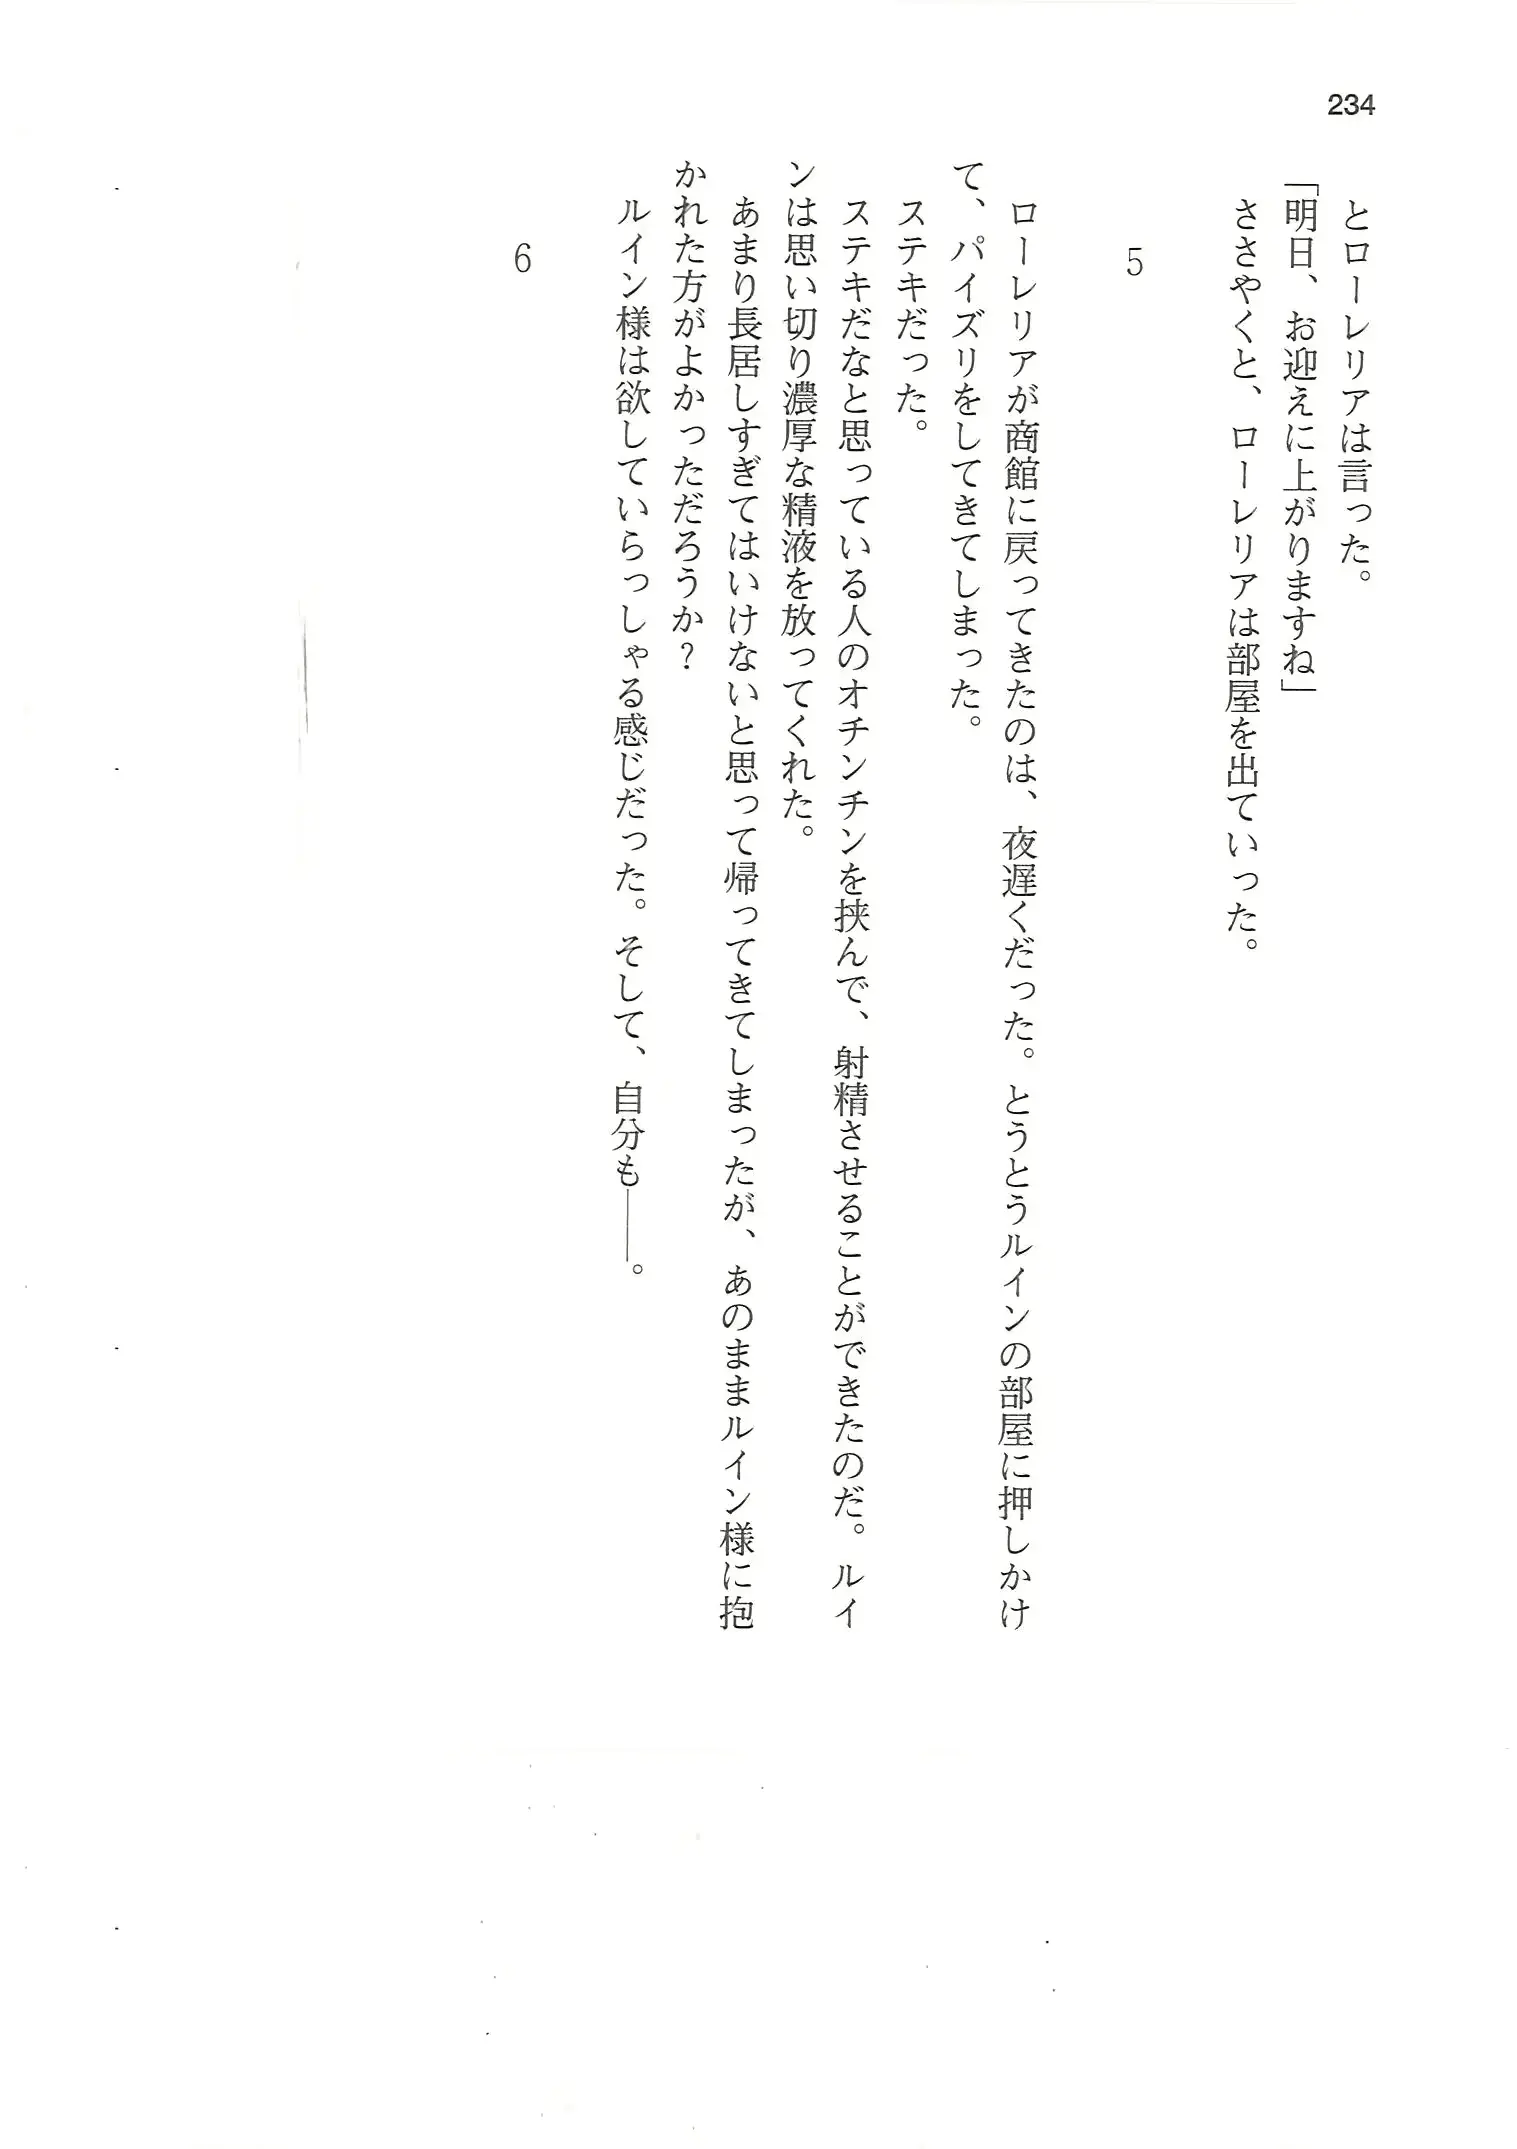 234
とローレリアは言った。
「明日、お迎えに上がりますね」
ささやくと、ローレリアは部屋を出ていった。
5
ローレリアが商館に戻ってきたのは、夜遅くだった。とうとうルインの部屋に押しかけ
て、パイズリをしてきてしまった。
ステキだった。
ステキだなと思っている人のオチンチンを挟んで、射精させることができたのだ。ルイ
ンは思い切り濃厚な精液を放ってくれた。
あまり長居しすぎてはいけないと思って帰ってきてしまったが、あのままルイン様に抱
かれた方がよかっただろうか?
ルイン様は欲していらっしゃる感じだった。そして、自分も――。
6